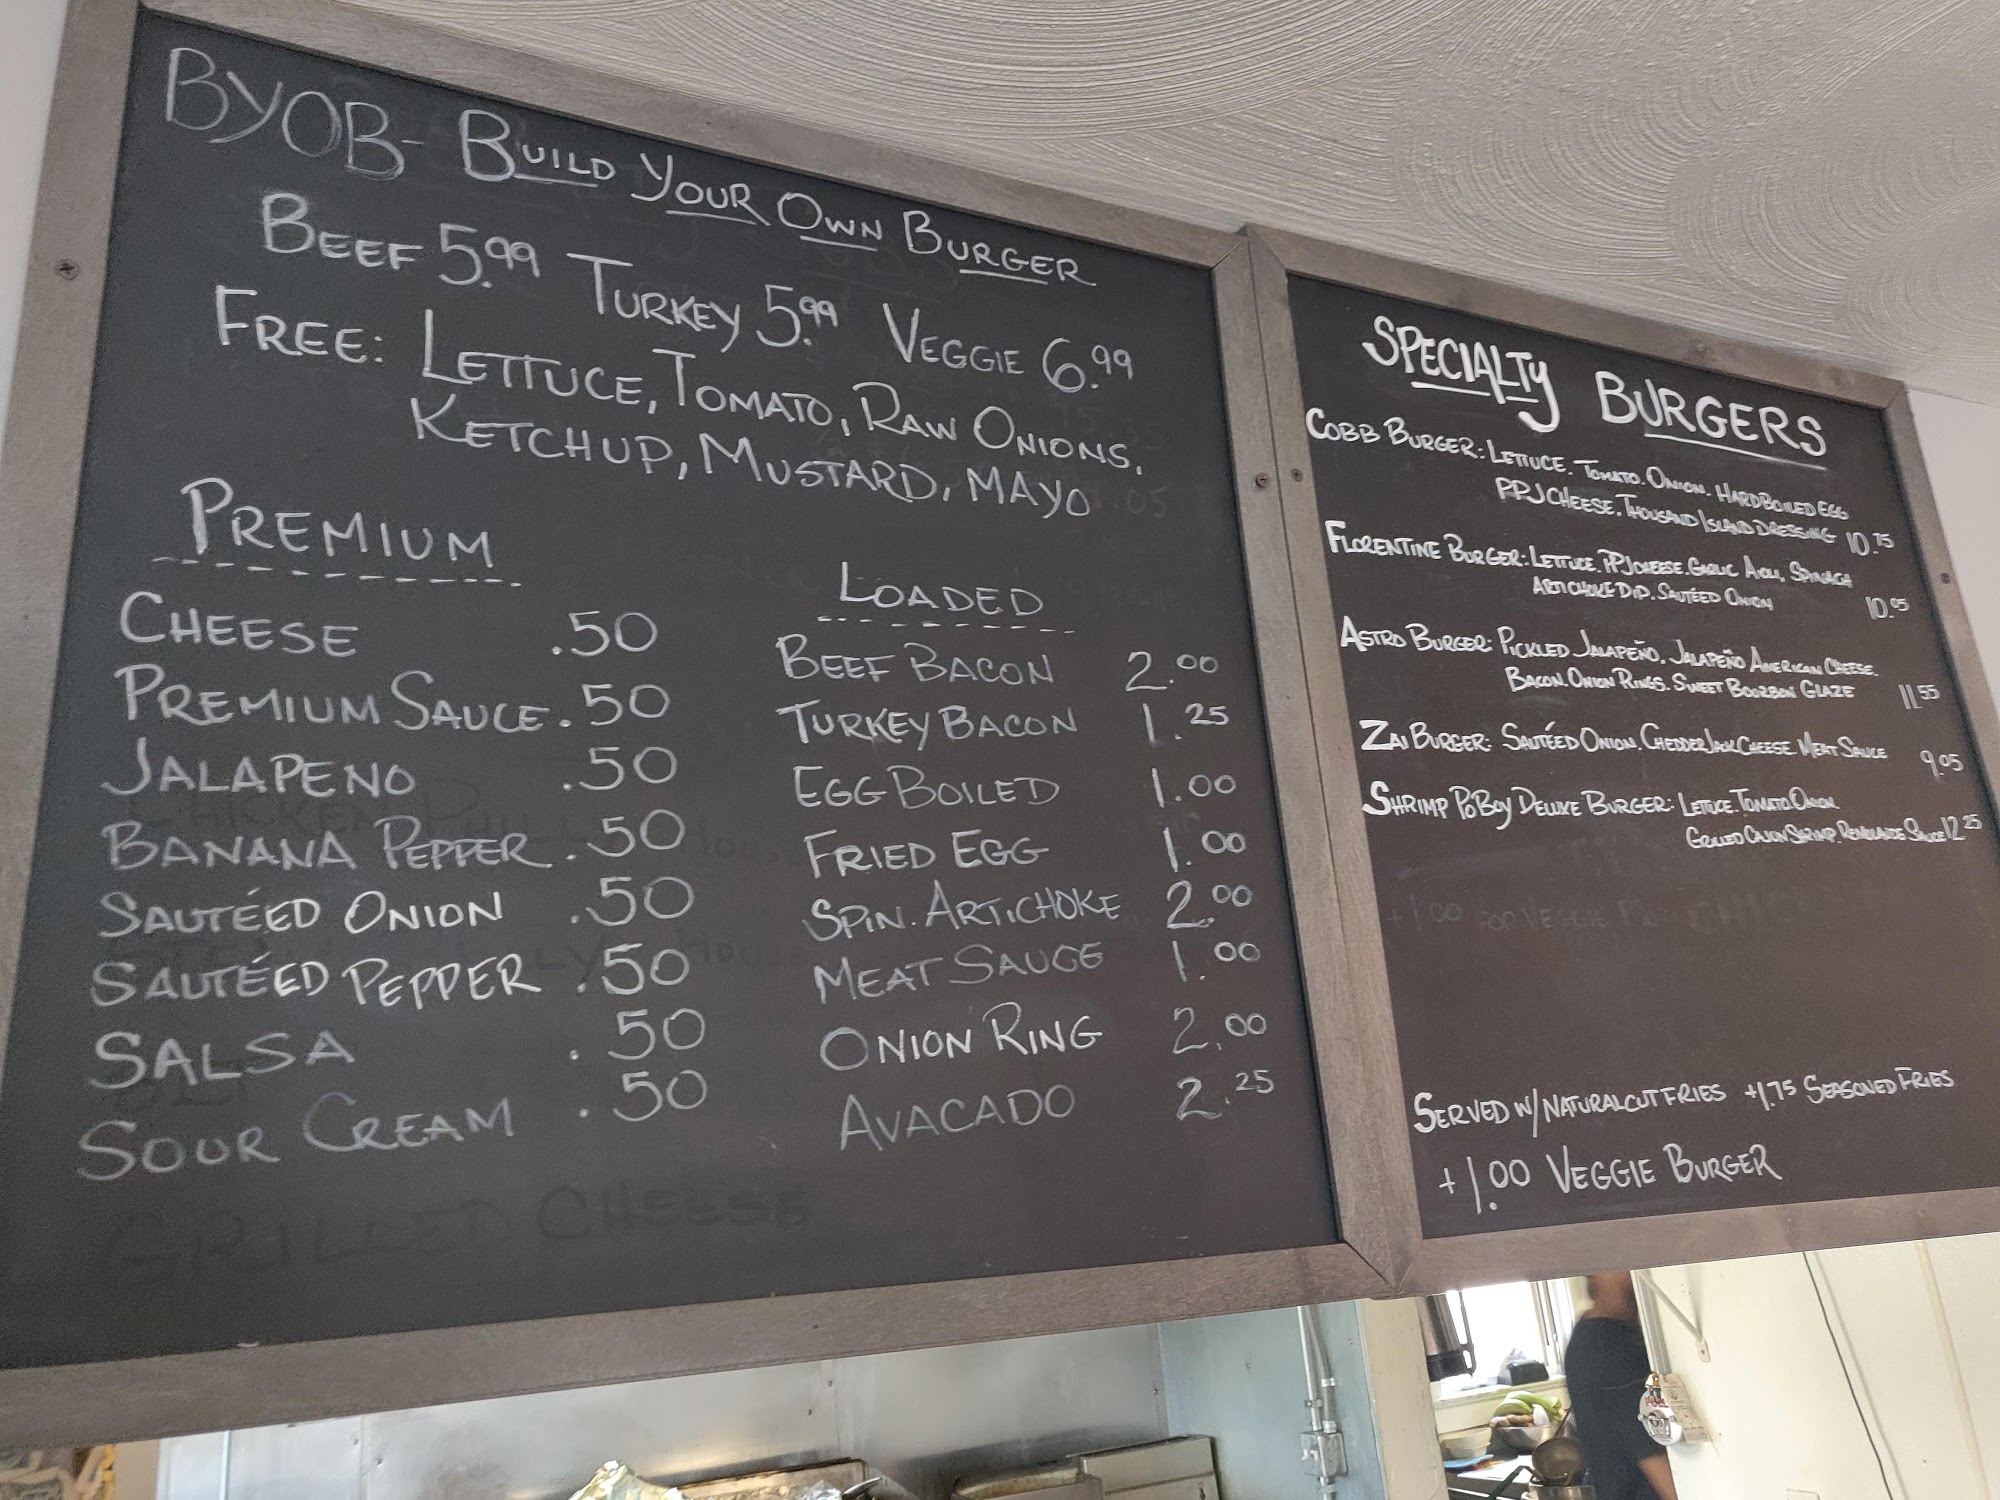 BYOB- BUILD YOUR OWN BURGER
BEEF 5.99 TURKEY 5.99 VEGGIE 6.99
FREE: LETTUCE, TOMATO, RAW ONIONS,
KETCHUP, MUSTARD, MAYO
PREMIUM
CHEESE .50
PREMIUM SAUCE .50
JALAPENO .50
BANANA PEPPER .50
SAUTÉED ONION .50
SAUTÉED PEPPER .50
SALSA .50
SOUR CREAM .50
GRILLED CHEESE
LOADED
BEEF BACON 2.00
TURKEY BACON 1.25
EGG BOILED 1.00
FRIED EGG 1.00
SPIN. ARTICHOKE 2.00
MEAT SAUCE 1.00
ONION RING 2.00
AVACADO 2.25
SPECIALTY BURGERS
COBB BURGER: LETTUCE. TOMATO. ONION. HARD BOILED EGG
PPJ CHEESE. THOUSAND ISLAND DRESSING 10.75
FLORENTINE BURGER: LETTUCE. PPJ CHEESE. GARLIC AIOLI, SPINACH
ARTICHOKE DIP. SAUTÉED ONION 10.05
ASTRO BURGER: PICKLED JALAPEÑO. JALAPEÑO AMERICAN CHEESE.
BACON. ONION RINGS. SWEET BOURBON GLAZE 11.55
ZAI BURGER: SAUTÉED ONION. CHEDDER JACK CHEESE MEAT SAUCE 9.05
SHRIMP POBOY DELUXE BURGER: LETTUCE. TOMATO ONION.
GRILLED CAJUN SHRIMP. REMOULADE SAUCE 12.25
+1.00 FOR VEGGIE
SERVED W/ NATURAL CUT FRIES +1.75 SEASONED FRIES
+1.00 VEGGIE BURGER